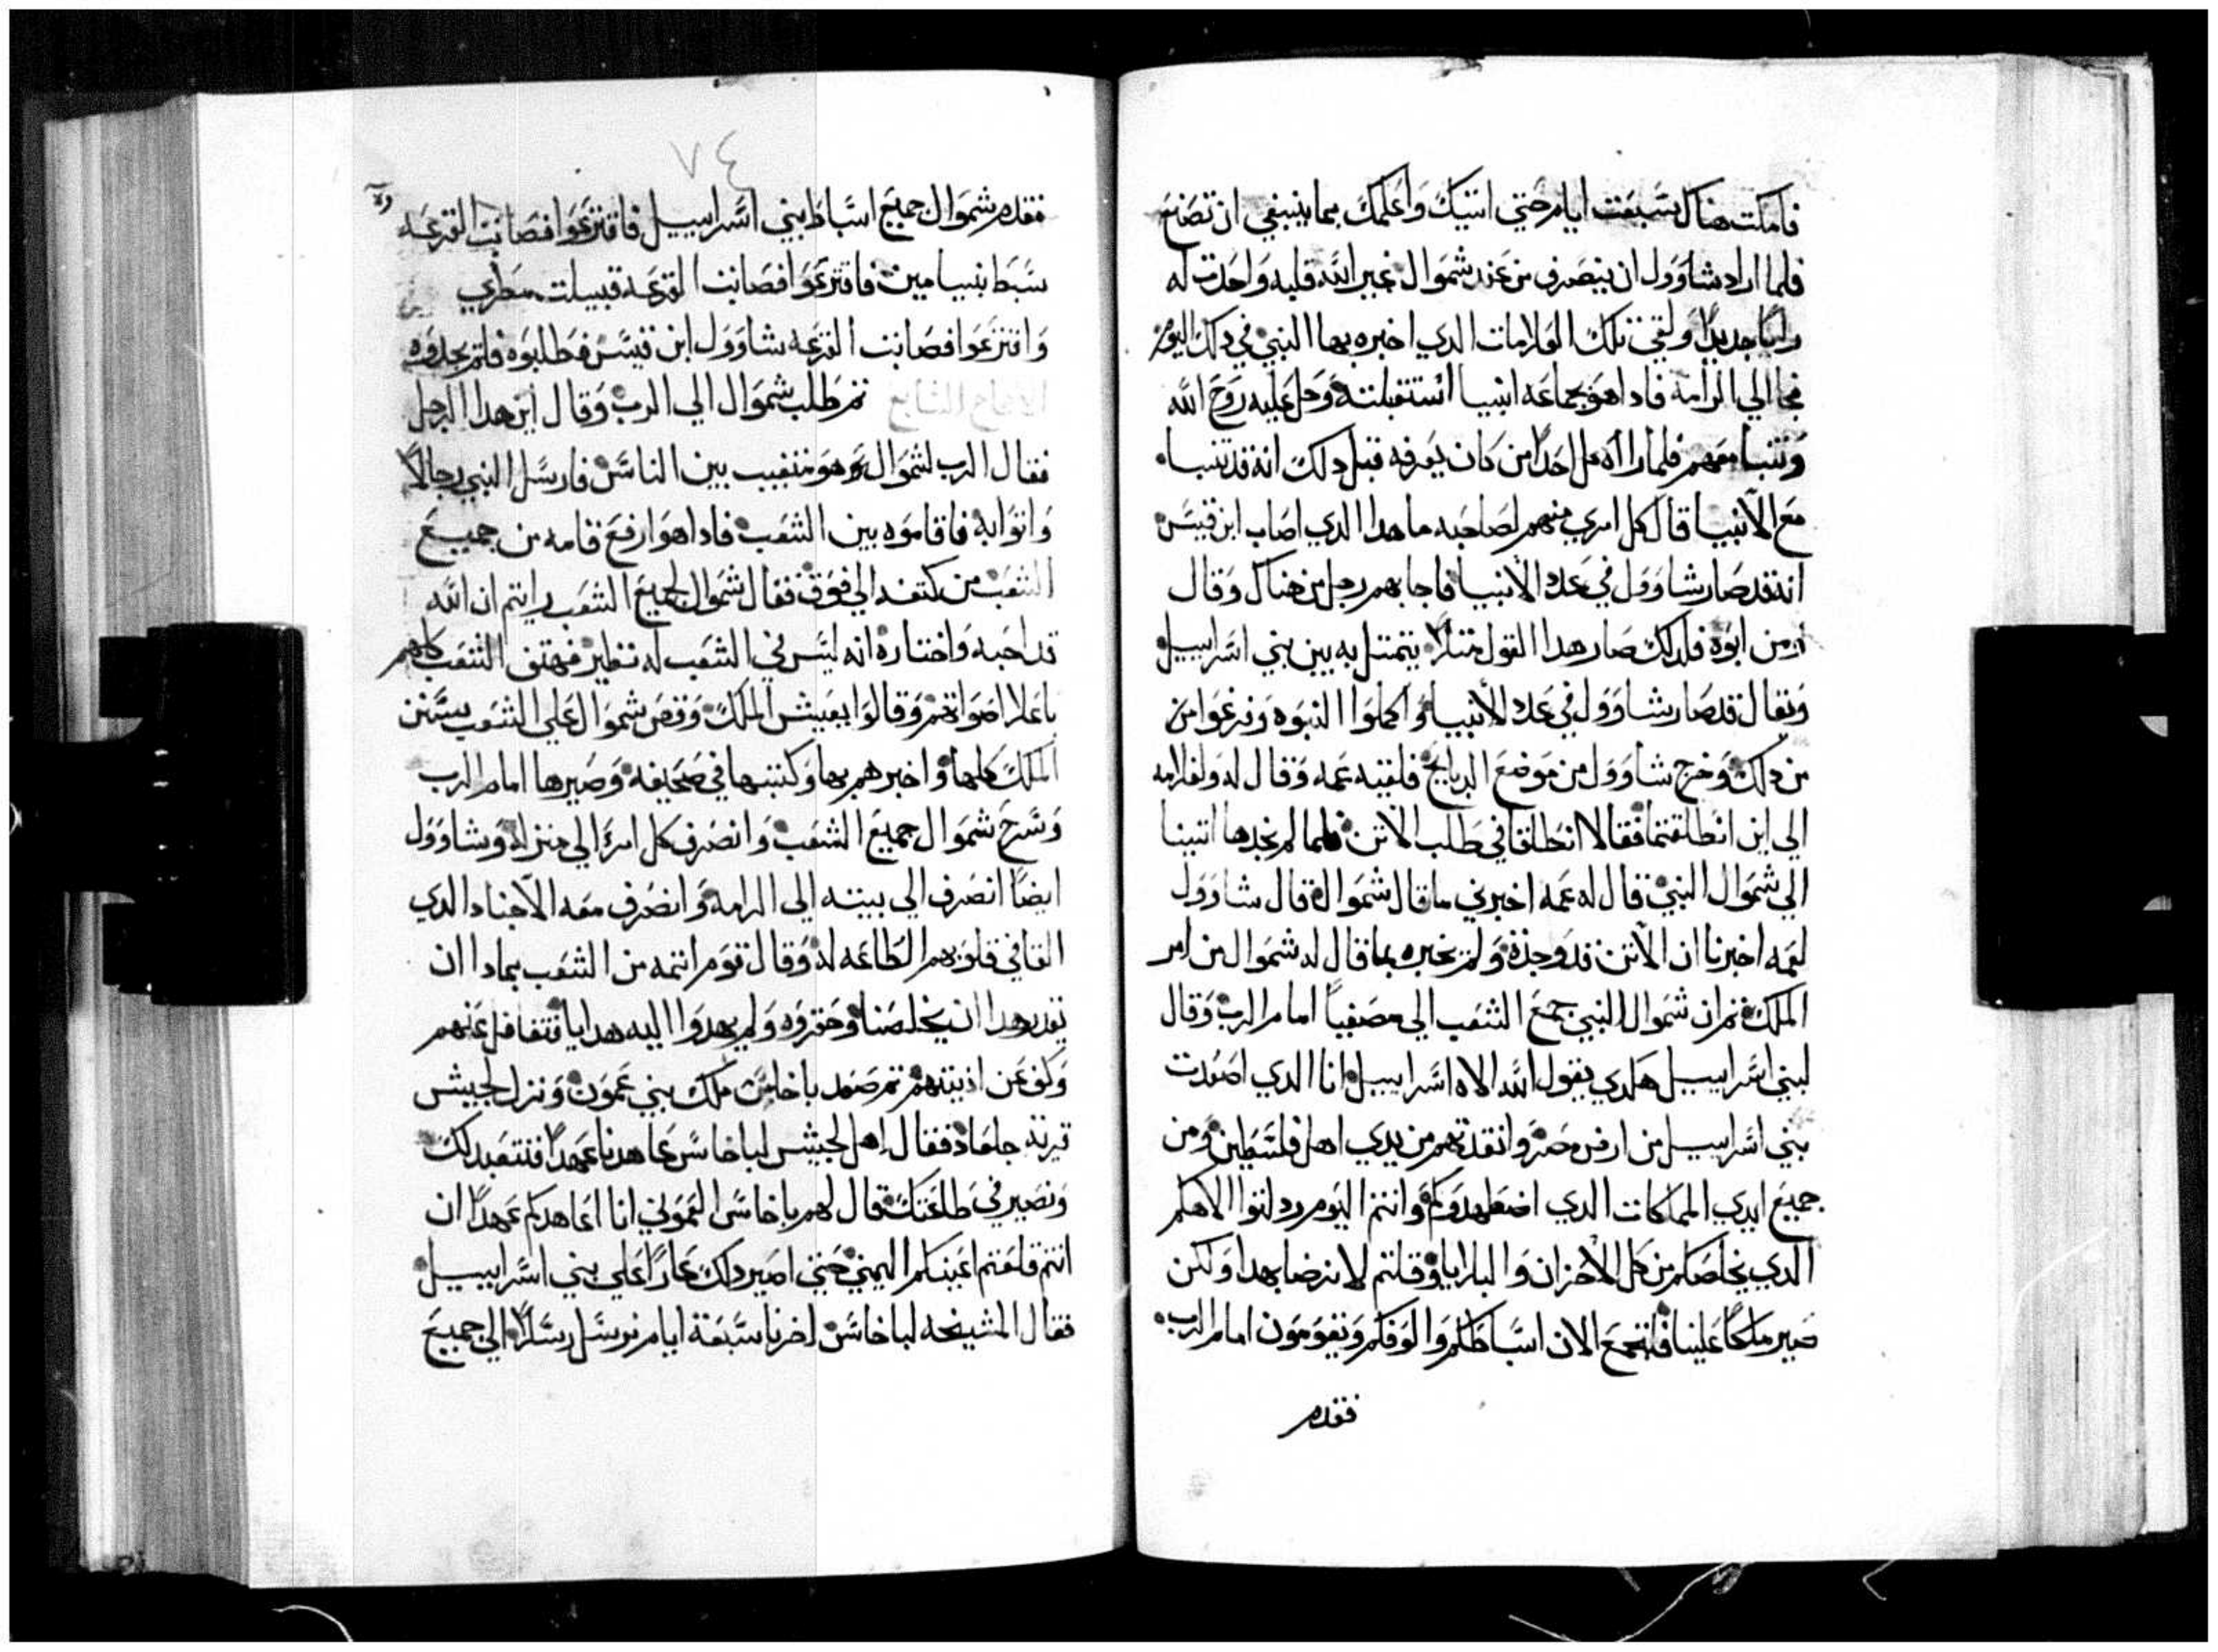 فامكت هناك سبعت ايام حتي اتيك واعلمك بما ينبغي ان تصنع
فلما اراد شاوول ان ينصرف من عند شموال غير الله قلبه واحدت له
رايًا جديدًا ولقي تلك العلامات الدي اخبره بها النبي في دلك اليوم
فجا الي الرامه فادا هو بجماعه انبيا استقبلته وحل عليه روح الله
وتنبا معهم فلما راا كل احدًا من كان يعرفه قبل دلك انه قد تنبا
مع الانبيا قال كل امري منهم لصاحبه ما هدا الدي اصاب ابن قيس
انه قد صار شاوول في عدد الانبيا فاجابهم رجل من هناك وقال
ومن ابوه فلدلك صار هدا القول متلًا يتمتل به بين بني اسراييل
ويقال قد صار شاوول في عدد الانبيا واكملوا النبوه وفرغوا من
من دلك وخرج شاوول من موضع الدبايح فلقيه عمه وقال له ولغلامه
الي اين انطلقتما فقالا انطلقنا في طلب الاتن فلما لم نجدها اتينا
الي شموال النبي قال له عمه اخبرني ما قال شموال قال شاوول
لعمه اخبرنا ان الاتن قد وجدة ولم يخبره بما قال له شموال من امر
الملك تم ان شموال النبي جمع الشعب الي مصفيا امام الرب وقال
لبني اسراييل هكدي يقول الله الاه اسراييل انا الدي اصعدت
بني اسراييل من ارض مصر وانقدتهم من يدي اهل فلسطين ومن
جميع ايدي المملكات الدي اضطهدوكم وانتم اليوم ردلتوا الاهكم
الدي يخلصكم من كل الاحزان والبلايا وقلتم لا نرضا بهدا ولكن
صير ملكًا علينا فلتجمع الان اسباطكم والوفكم ويقومون امام الرب
فقدم
٧٤
فقدم شموال جميع اسباط بني اسراييل فاقترعوا فصابت القرعه
سبط بنيامين فاقترعوا فصابت القرعه قبيلت مطري
واقترعوا فصابت القرعه شاوول ابن قيس فطلبوه فلم يجدوه
تم طلب شموال الي الرب وقال اين هدا الرجل
فقال الرب لشموال هو متغيب بين الناس فارسل النبي رجالًا
واتوا به فاقاموه بين الشعب فادا هو ارفع قامه من جميع
الشعب من كتفه الي فوق فقال شموال لجميع الشعب رايتم ان الله
قد احبه واختاره انه ليس في الشعب له نظير فهتف الشعب كلهم
باعلا اصواتهم وقالوا يعيش الملك وقص شموال علي الشعب سنن
الملك كلها واخبرهم بها وكتبها في صحيفه وصيرها امام الرب
وسرح شموال جميع الشعب وانصرف كل امرء الي منزله وشاوول
ايضًا انصرف الي بيته الي الرامه وانصرف معه الاجناد الدي
القا في قلوبهم الطاعه له وقال قوم اتمه من الشعب بمادا ان
يقدر هدا ان يخلصنا وحقروه ولم يهدوا اليه هدايا فتغافل عنهم
وكف عن اديتهم تم صعد باخاس ملك بني عمون ونزل لجبيش
قرية جلعاد فقال اهل لجبيش لباخاس عاهدنا عهدًا فنتعبد لك
ونصير في طاعتك قال لهم باخاس العموني انا اعاهدكم عهدًا ان
انتم قلعتم اعينكم اليمني حتي اصير دلك عارًا علي بني اسراييل
فقال المشيخه لباخاس اخرنا سبعة ايام نرسل رسلًا الي جميع